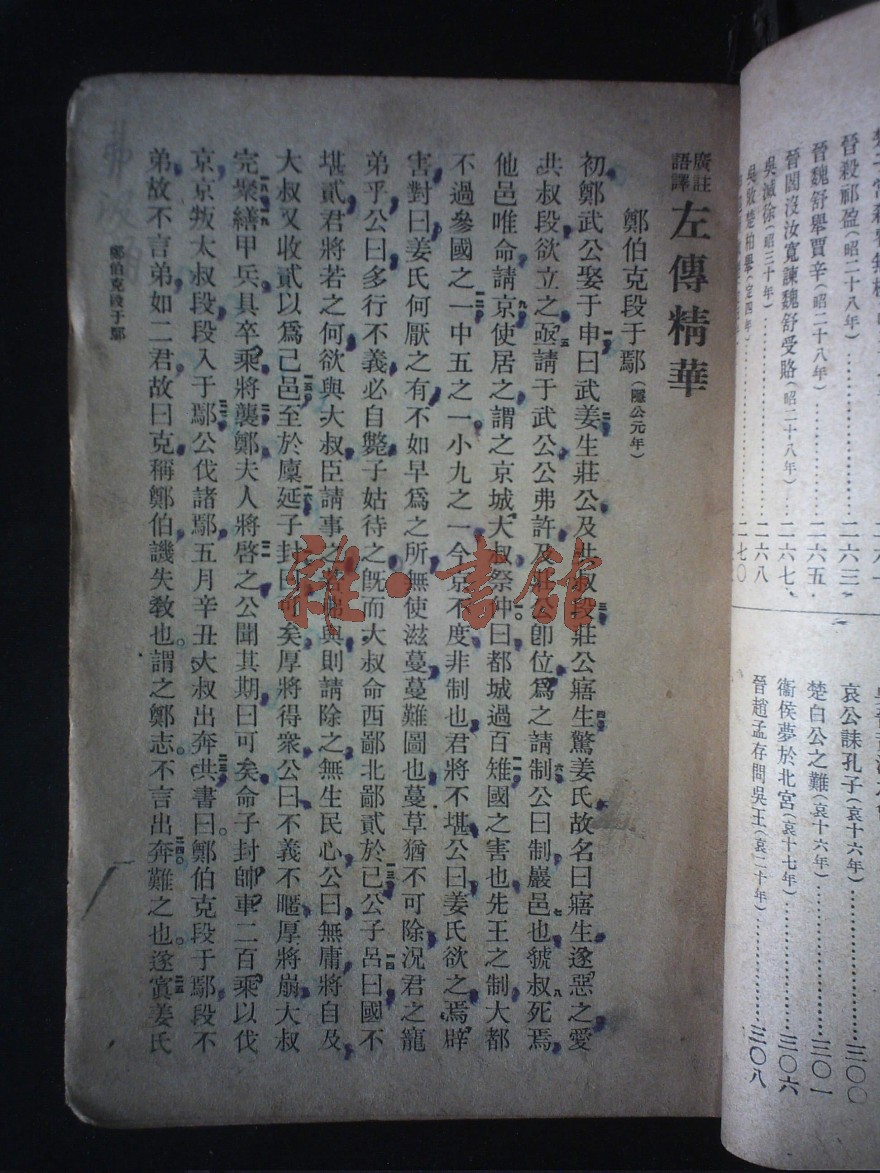 晉殺祁盈(昭二十八年)……二六三
晉魏舒舉賈辛(昭二十八年)……二六五
晉閻沒汝寬諫魏舒受賂(昭二十八年)……二六七
吳滅徐(昭三十年)……二六八
吳敗楚柏舉(定四年)……二七〇
哀公誄孔子(哀十六年)……三〇〇
楚白公之難(哀十六年)……三〇一
衞侯夢於北宮(哀十七年)……三〇六
晉趙孟存問吳王(哀二十年)……三〇八
廣註
語譯
左傳精華
鄭伯克段于鄢(隱公元年)
初鄭武公娶于申曰武姜生莊公及共叔段莊公寤生驚姜氏故名曰寤生遂惡之愛
共叔段欲立之亟請于武公公弗許及莊公卽位爲之請制公曰制巖邑也虢叔死焉
他邑唯命請京使居之謂之京城大叔祭仲曰都城過百雉國之害也先王之制大都
不過參國之一中五之一小九之一今京不度非制也君將不堪公曰姜氏欲之焉辟
害對曰姜氏何厭之有不如早爲之所無使滋蔓蔓難圖也蔓草猶不可除況君之寵
弟乎公曰多行不義必自斃子姑待之旣而大叔命西鄙北鄙貳於己公子呂曰國不
堪貳君將若之何欲與大叔臣請事之若弗與則請除之無生民心公曰無庸將自及
大叔又收貳以爲己邑至於廩延子封曰可矣厚將得衆公曰不義不暱厚將崩大叔
完聚繕甲兵具卒乘將襲鄭夫人將啓之公聞其期曰可矣命子封帥車二百乘以伐
京京叛太叔段段入于鄢公伐諸鄢五月辛丑大叔出奔共書曰鄭伯克段于鄢段不
弟故不言弟如二君故曰克稱鄭伯譏失敎也謂之鄭志不言出奔難之也遂寘姜氏
鄭伯克段于鄢
雜·書館